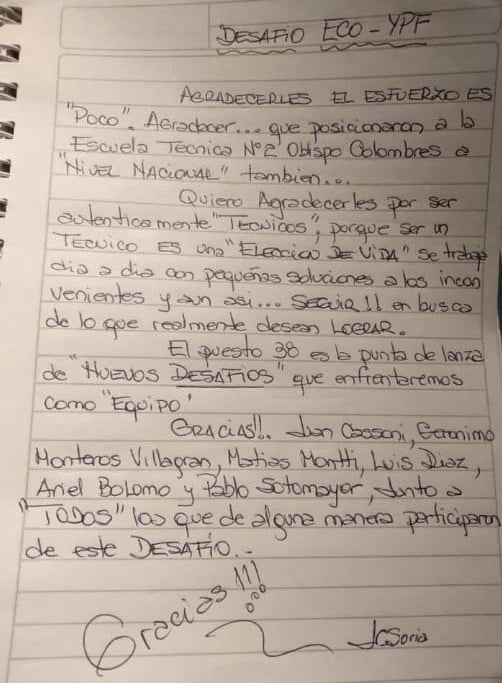 DESAFIO ECO - YPF
AGRADECERLES EL ESFUERZO ES
"Poco". Agradecer... que posicionaron a la
Escuela Técnica Nº2 Obispo Colombres a
"NIVEL NACIONAL" tambien...
Quiero Agradecerles por ser
autenticamente "TECNICOS", porque ser un
TECNICO ES una "ELECCION DE VIDA" se trabaja
dia a dia con pequeñas soluciones a los incon
venientes y aun asi... SEGUIR!! en busca
de lo que realmente desean LOGRAR.
El puesto 38 es la punta de lanza
de "NUEVOS DESAFIOS" que enfrentaremos
como "EQUIPO"
GRACIAS!!. Juan Cassoni, Geronimo
Monteros Villagran, Matias Montti, Luis Diaz,
Ariel Bolomo y Pablo Sotomayor, Junto a
"TODOS" los que de alguna manera participaron
de este DESAFÍO..-
Gracias!!!
JCSoria